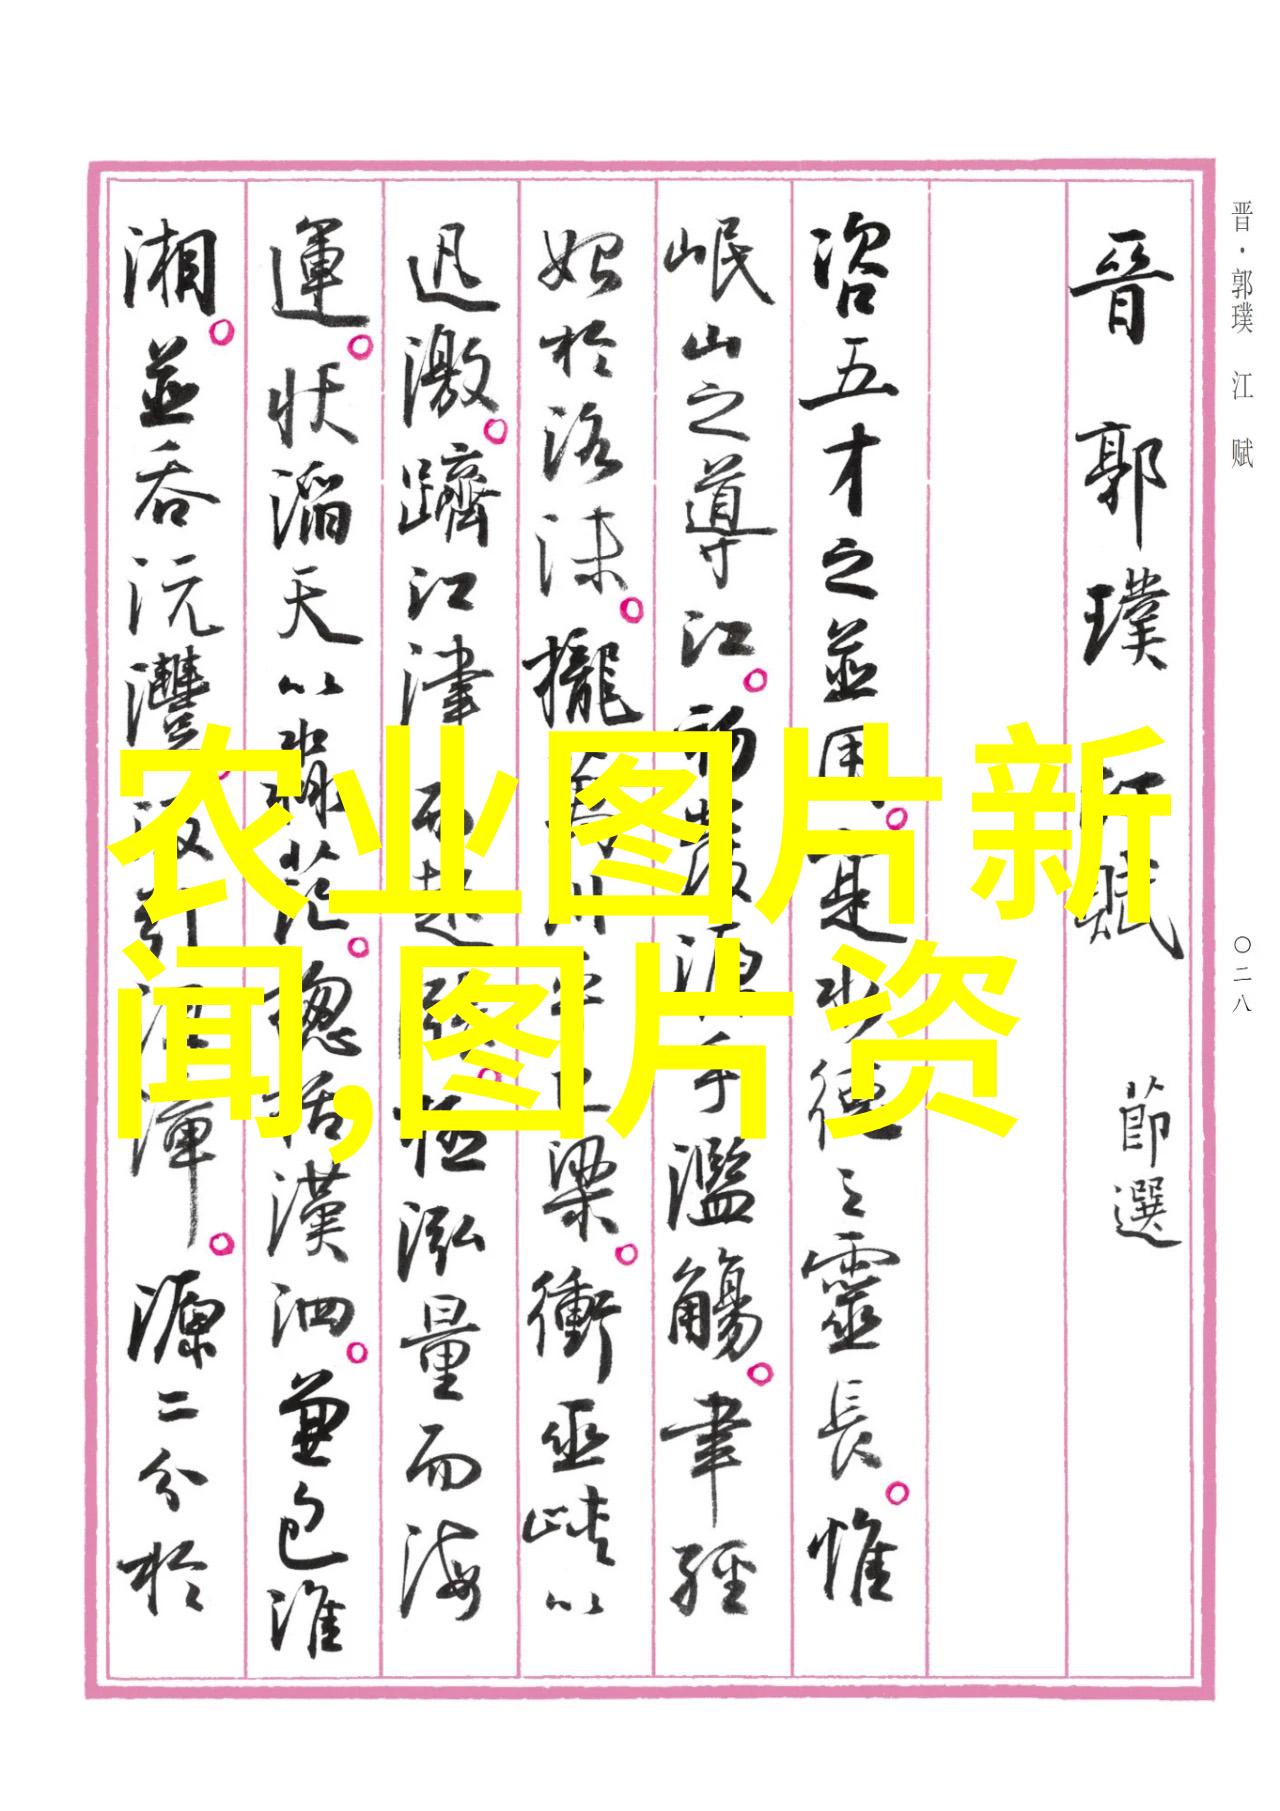 晋·郭璞 江赋
〇二八
晉 郭璞 江賦 節選
咨五才之並用。寔水德之靈長。惟
岷山之導江。初發源乎濫觴。聿經
始於洛沬。攏萬川乎巴梁。衝巫峽以
迅激。躋江津而起漲。極泓量而海
運。狀滔天以淼茫。揔括漢泗。兼包淮
湘。並吞沅澧。汲引沮漳。源二分於
农业图片新
闻,图片资